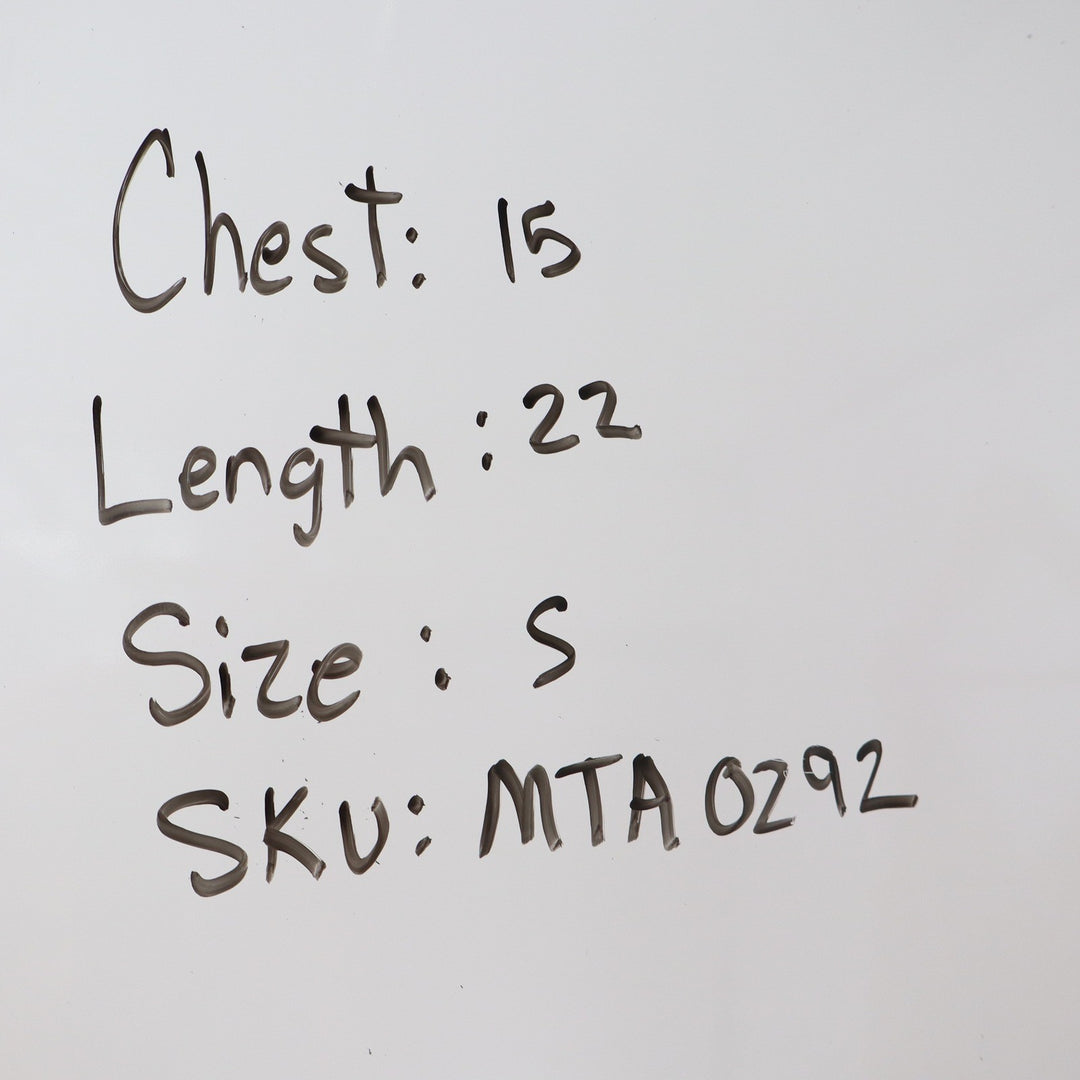 Chest: 15
Length: 22
Size: S
SKU: MTA0292